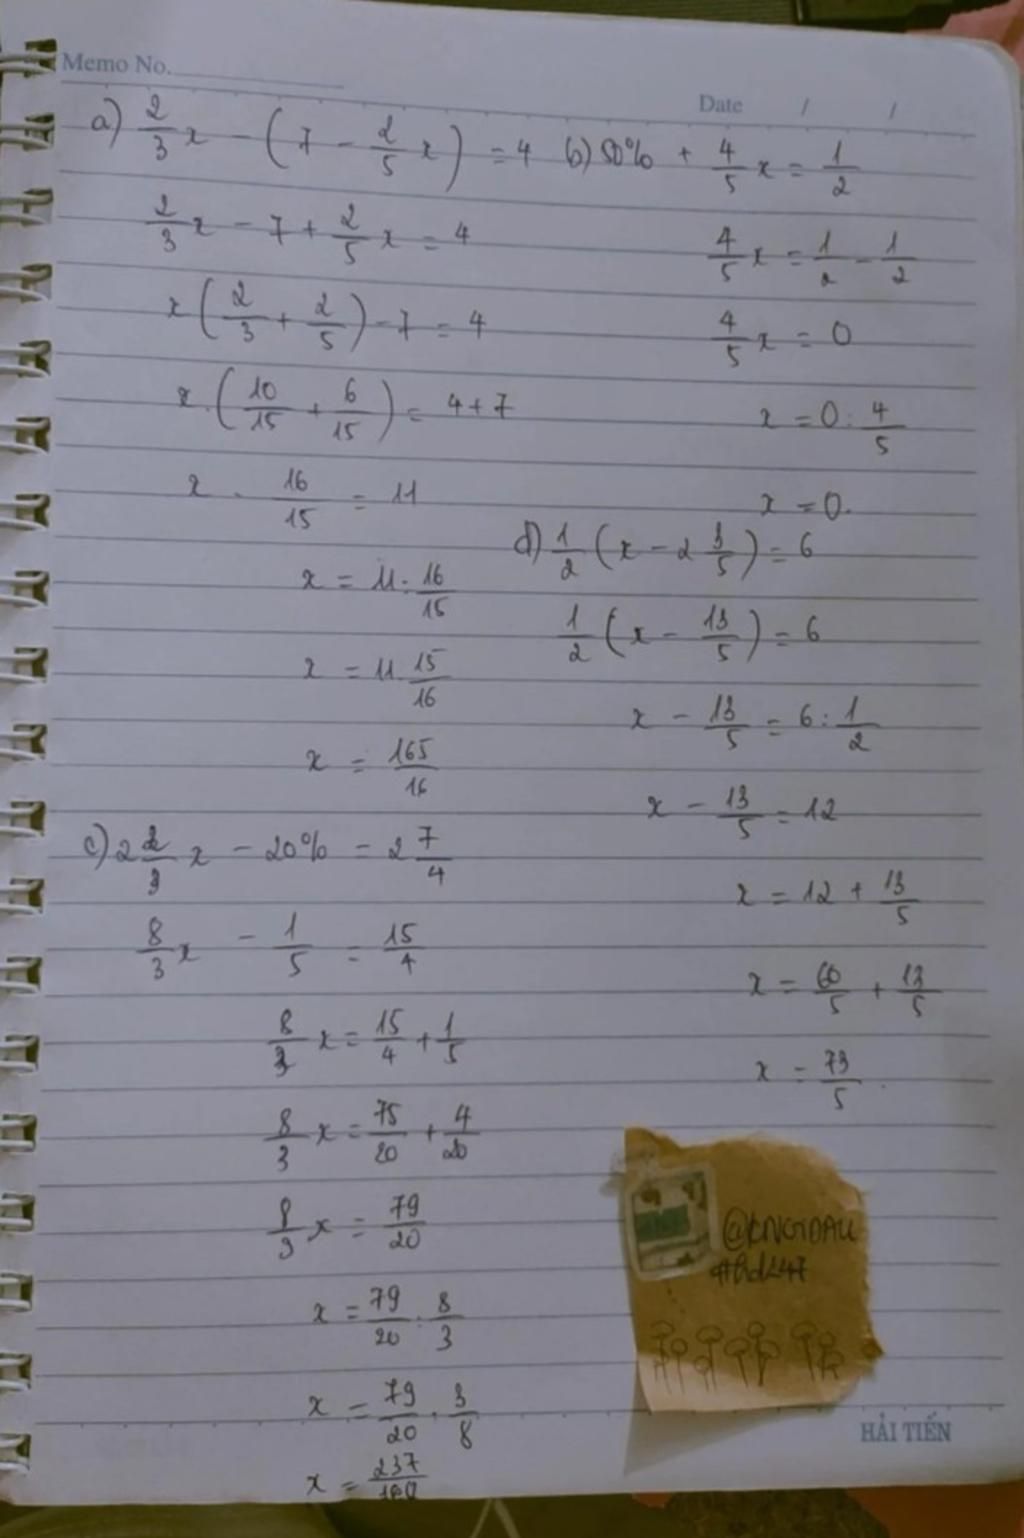 Memo No.
Date / /
a) 2/3 x - (7 - 2/5 x) = 4
2/3 x - 7 + 2/5 x = 4
x (2/3 + 2/5) - 7 = 4
x . (10/15 + 6/15) = 4 + 7
x . 16/15 = 11
x = 11 : 16/15
x = 11 . 15/16
x = 165/16
b) 50% + 4/5 x = 1/2
4/5 x = 1/2 - 1/2
4/5 x = 0
x = 0 : 4/5
x = 0.
c) 2 2/3 x - 20% = 2 7/4
8/3 x - 1/5 = 15/4
8/3 x = 15/4 + 1/5
8/3 x = 75/20 + 4/20
8/3 x = 79/20
x = 79/20 : 8/3
x = 79/20 . 3/8
x = 237/160
d) 1/2 (x - 2 3/5) = 6
1/2 (x - 13/5) = 6
x - 13/5 = 6 : 1/2
x - 13/5 = 12
x = 12 + 13/5
x = 60/5 + 13/5
x = 73/5.
HẢI TIẾN